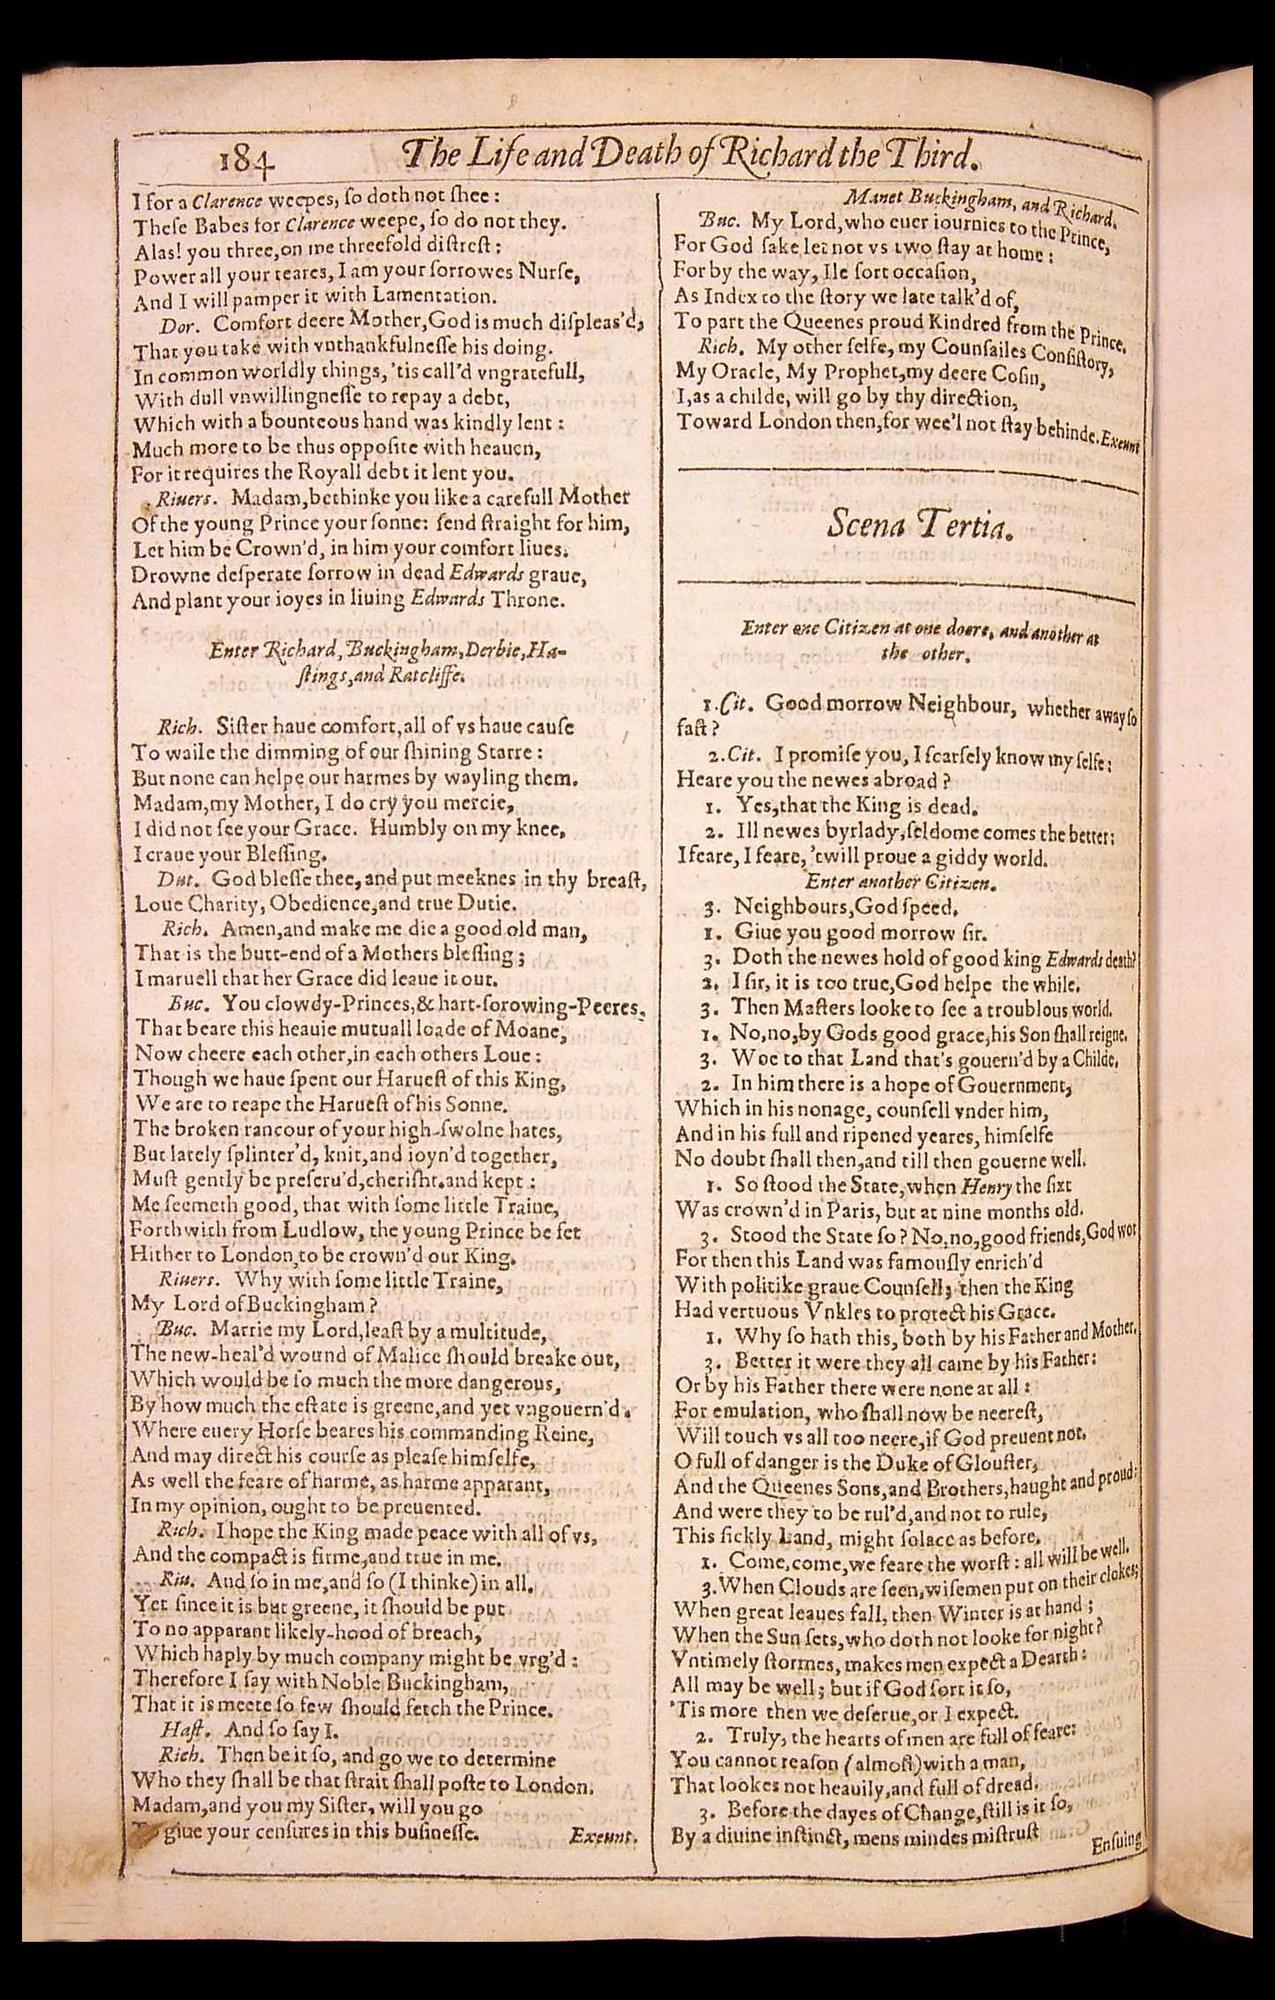 184
The Life and Death of Richard the Third.
I for a Clarence weepes, ſo doth not ſhee:
Theſe Babes for Clarence weepe, ſo do not they.
Alas! you three, on me threefold diſtreſt:
Power all your teares, I am your ſorrowes Nurſe,
And I will pamper it with Lamentation.
Dor. Comfort deere Mother, God is much diſpleas'd,
That you take with vnthankfulneſſe his doing.
In common worldly things, 'tis call'd vngratefull,
With dull vnwillingneſſe to repay a debt,
Which with a bounteous hand was kindly lent:
Much more to be thus oppoſite with heauen,
For it requires the Royall debt it lent you.
Riuers. Madam, bethinke you like a carefull Mother
Of the young Prince your ſonne: ſend ſtraight for him,
Let him be Crown'd, in him your comfort liues.
Drowne deſperate ſorrow in dead Edwards graue,
And plant your ioyes in liuing Edwards Throne.
Enter Richard, Buckingham, Derbie, Ha-
ſtings, and Ratcliffe.
Rich. Siſter haue comfort, all of vs haue cauſe
To waile the dimming of our ſhining Starre:
But none can helpe our harmes by wayling them.
Madam, my Mother, I do cry you mercie,
I did not ſee your Grace. Humbly on my knee,
I craue your Bleſſing.
Dut. God bleſſe thee, and put meeknes in thy breaſt,
Loue Charity, Obedience, and true Dutie.
Rich. Amen, and make me die a good old man,
That is the butt-end of a Mothers bleſſing;
I maruell that her Grace did leaue it out.
Buc. You clowdy-Princes, & hart-ſorowing-Peeres,
That beare this heauie mutuall loade of Moane,
Now cheere each other, in each others Loue:
Though we haue ſpent our Harueſt of this King,
We are to reape the Harueſt of his Sonne.
The broken rancour of your high-ſwolne hates,
But lately ſplinter'd, knit, and ioyn'd together,
Muſt gently be preſeru'd, cheriſht, and kept:
Me ſeemeth good, that with ſome little Traine,
Forthwith from Ludlow, the young Prince be fet
Hither to London, to be crown'd our King.
Riuers. Why with ſome little Traine,
My Lord of Buckingham?
Buc. Marrie my Lord, leaſt by a multitude,
The new-heal'd wound of Malice ſhould breake out,
Which would be ſo much the more dangerous,
By how much the eſtate is greene, and yet vngouern'd.
Where euery Horſe beares his commanding Reine,
And may direct his courſe as pleaſe himſelfe,
As well the feare of harme, as harme apparant,
In my opinion, ought to be preuented.
Rich. I hope the King made peace with all of vs,
And the compact is firme, and true in me.
Riu. And ſo in me, and ſo (I thinke) in all.
Yet ſince it is but greene, it ſhould be put
To no apparant likely-hood of breach,
Which haply by much company might be vrg'd:
Therefore I ſay with Noble Buckingham,
That it is meete ſo few ſhould fetch the Prince.
Haſt. And ſo ſay I.
Rich. Then be it ſo, and go we to determine
Who they ſhall be that ſtrait ſhall poſte to London.
Madam, and you my Siſter, will you go
To giue your cenſures in this buſineſſe. Exeunt.
Manet Buckingham, and Richard.
Buc. My Lord, who euer iournies to the Prince,
For God ſake let not vs two ſtay at home:
For by the way, Ile ſort occaſion,
As Index to the ſtory we late talk'd of,
To part the Queenes proud Kindred from the Prince.
Rich. My other ſelfe, my Counſailes Conſiſtory,
My Oracle, My Prophet, my deere Coſin,
I, as a childe, will go by thy direction,
Toward London then, for wee'l not ſtay behinde. Exeunt
Scena Tertia.
Enter one Citizen at one doore, and another at
the other.
1. Cit. Good morrow Neighbour, whether away ſo
faſt?
2. Cit. I promiſe you, I ſcarſely know my ſelfe:
Heare you the newes abroad?
1. Yes, that the King is dead.
2. Ill newes byrlady, ſeldome comes the better:
I feare, I feare, 'twill proue a giddy world.
Enter another Citizen.
3. Neighbours, God ſpeed.
1. Giue you good morrow ſir.
3. Doth the newes hold of good king Edwards death?
2. I ſir, it is too true, God helpe the while.
3. Then Maſters looke to ſee a troublous world.
1. No, no, by Gods good grace, his Son ſhall reigne.
3. Woe to that Land that's gouern'd by a Childe.
2. In him there is a hope of Gouernment,
Which in his nonage, counſell vnder him,
And in his full and ripened yeares, himſelfe
No doubt ſhall then, and till then gouerne well.
1. So ſtood the State, when Henry the ſixt
Was crown'd in Paris, but at nine months old.
3. Stood the State ſo? No, no, good friends, God wot
For then this Land was famouſly enrich'd
With politike graue Counſell; then the King
Had vertuous Vnkles to protect his Grace.
1. Why ſo hath this, both by his Father and Mother.
3. Better it were they all came by his Father:
Or by his Father there were none at all:
For emulation, who ſhall now be neereſt,
Will touch vs all too neere, if God preuent not.
O full of danger is the Duke of Glouſter,
And the Queenes Sons, and Brothers, haught and proud:
And were they to be rul'd, and not to rule,
This ſickly Land, might ſolace as before.
1. Come, come, we feare the worſt: all will be well.
3. When Clouds are ſeen, wiſemen put on their clokes;
When great leaues fall, then Winter is at hand;
When the Sun ſets, who doth not looke for night?
Vntimely ſtormes, makes men expect a Dearth:
All may be well; but if God ſort it ſo,
'Tis more then we deſerue, or I expect.
2. Truly, the hearts of men are full of feare:
You cannot reaſon (almoſt) with a man,
That lookes not heauily, and full of dread.
3. Before the dayes of Change, ſtill is it ſo,
By a diuine inſtinct, mens mindes miſtruſt
Enſuing